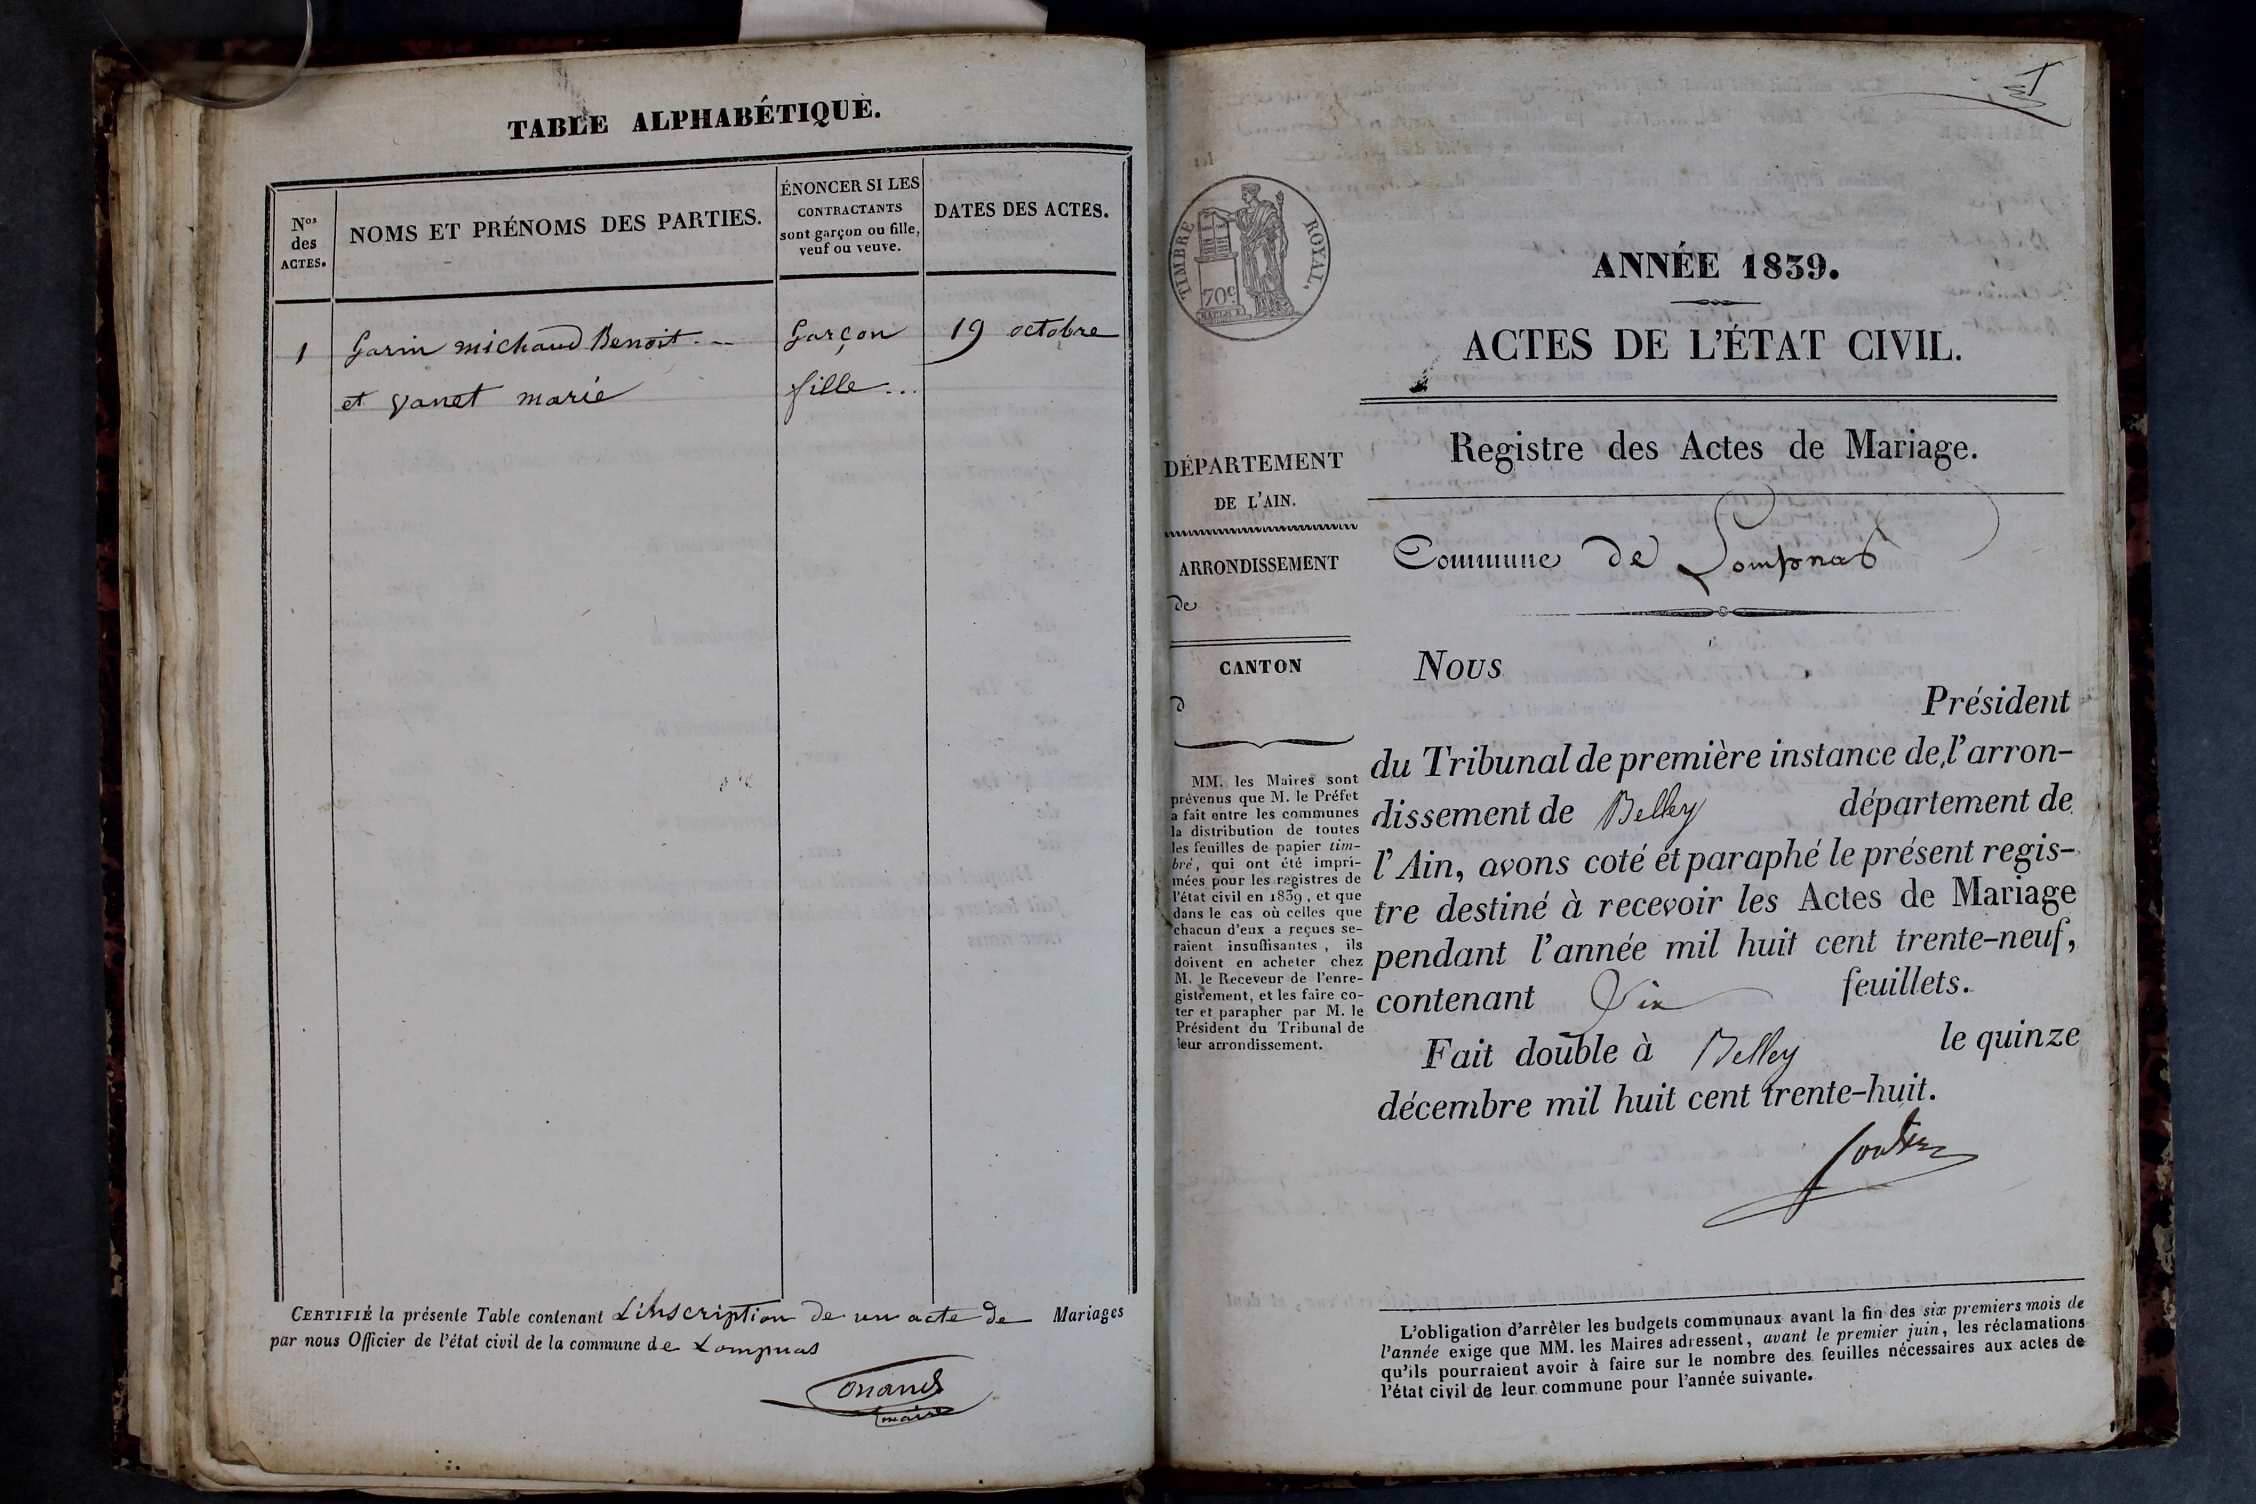 TABLE ALPHABÉTIQUE.
Nos des ACTES.
NOMS ET PRÉNOMS DES PARTIES.
ÉNONCER SI LES
CONTRACTANTS
sont garçon ou fille,
veuf ou veuve.
DATES DES ACTES.
1 Garin michaud Benoit Garçon 19 octobre
et vanet marie fille
CERTIFIÉ la présente Table contenant L'inscription de un acte de Mariages
par nous Officier de l'état civil de la commune de Lompnas
maire
TIMBRE ROYAL.
70c
DÉPARTEMENT
DE L'AIN.
ARRONDISSEMENT
de
CANTON
d
MM. les Maires sont
prévenus que M. le Préfet
a fait entre les communes
la distribution de toutes
les feuilles de papier tim-
bré, qui ont été impri-
mées pour les registres de
l'état civil en 1839, et que
dans le cas où celles que
chacun d'eux a reçues se-
raient insuffisantes, ils
doivent en acheter chez
M. le Receveur de l'enre-
gistrement, et les faire co-
ter et parapher par M. le
Président du Tribunal de
leur arrondissement.
ANNÉE 1839.
ACTES DE L'ÉTAT CIVIL.
Registre des Actes de Mariage.
Commune de Lompnas
Nous
Président
du Tribunal de première instance de l'arron-
dissement de Belley département de
l'Ain, avons coté et paraphé le présent regis-
tre destiné à recevoir les Actes de Mariage
pendant l'année mil huit cent trente-neuf,
contenant feuillets.
Fait double à Belley le quinze
décembre mil huit cent trente-huit.
L'obligation d'arrêter les budgets communaux avant la fin des six premiers mois de
l'année exige que MM. les Maires adressent, avant le premier juin, les réclamations
qu'ils pourraient avoir à faire sur le nombre des feuilles nécessaires aux actes de
l'état civil de leur commune pour l'année suivante.